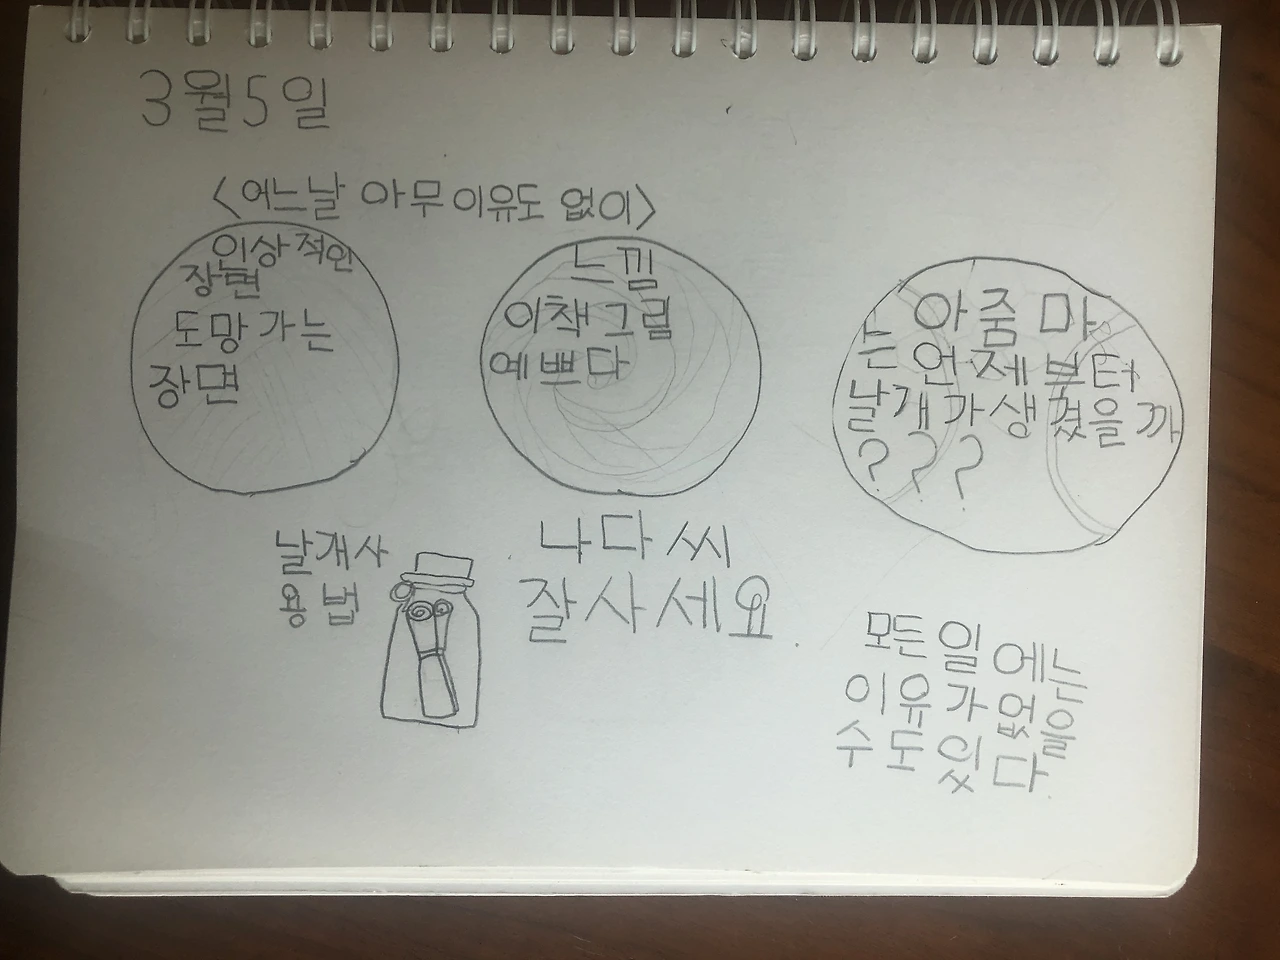 3월5일
<어느날 아무이유도 없이>
인상적인
장면
도망가는
장면
느낌
이책그림
예쁘다
아줌마
는 언제부터
날개가생겼을까
???
날개사
용법
나다씨
잘사세요
모든일에는
이유가없을
수도있다